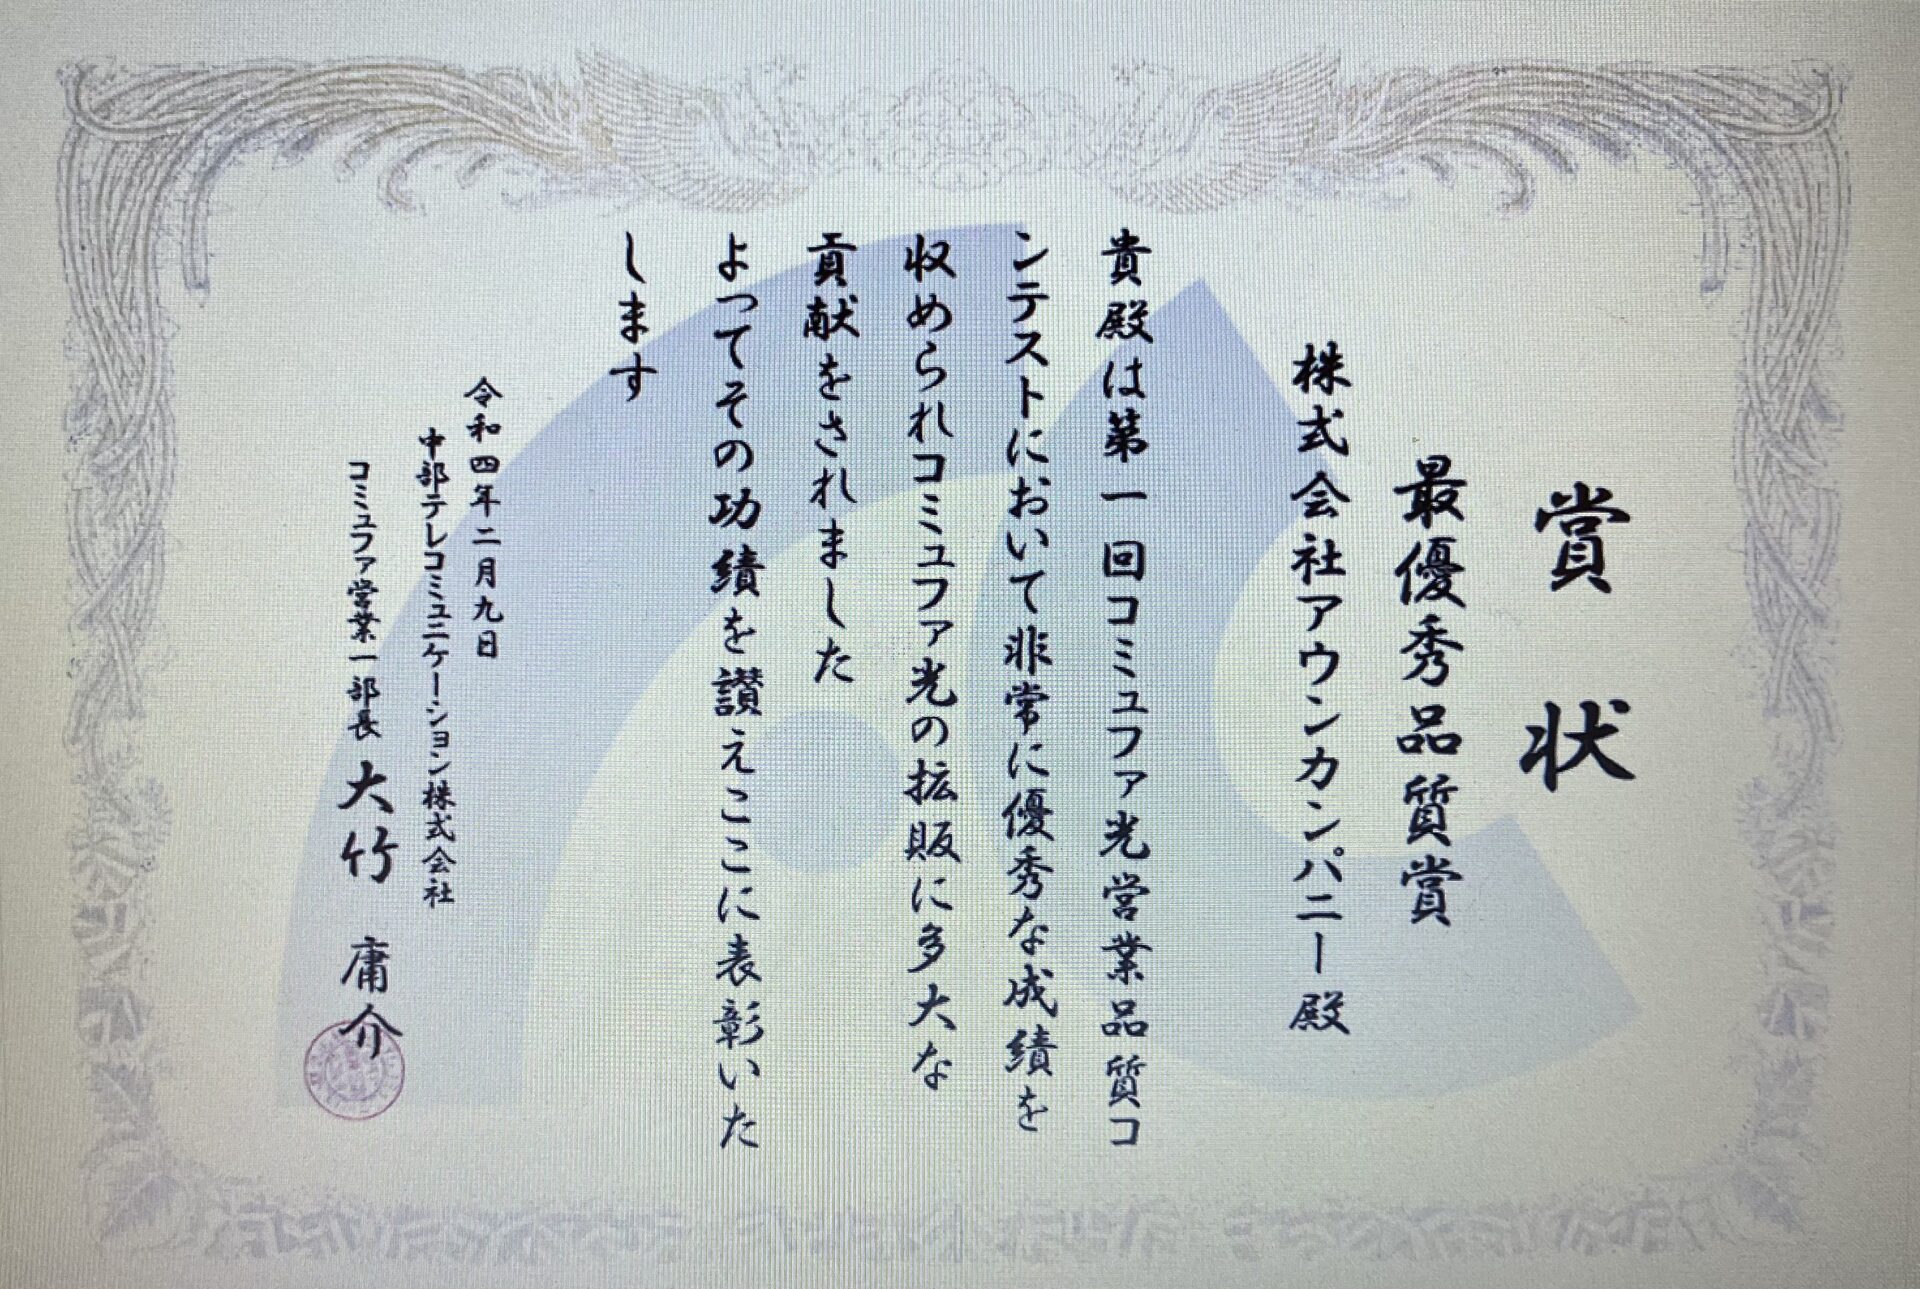 賞状
最優秀品質賞
株式会社アウンカンパニー殿
貴殿は第一回コミュファ光営業品質コ
ンテストにおいて非常に優秀な成績を
収められコミュファ光の拡販に多大な
貢献をされました
よってその功績を讃えここに表彰いた
します
令和四年二月九日
中部テレコミュニケーション株式会社
コミュファ営業一部長 大竹 庸介